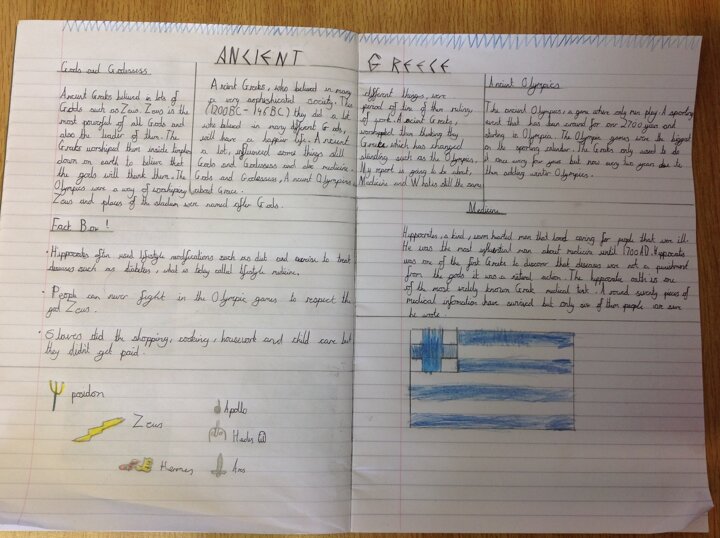 ANCIENT GREECE
Gods and Godessess
Ancient Greks belived in lots of
Gods such as Zeus. Zeus is the
most powerful of all Gods and
also the leader of them. The
Greks worshiped them inside temples
down on earth to believe that
the gods will think them. The
Olympics were a way of worshiping
Zeus and places of the stadium were named after Gods.
Ancient Greks, who belived in many
a very sophisticated society. The
(1200BC - 146BC) they did a lot
who belived in many different Gods,
would have a happier life. Ancient
a lot, influenced some things still
Gods and Godessess and also medicine.
Gods and Godessess, Ancient Olympics
about Grece.
different things, were
period of time of their ruling,
of work. Ancient Greks,
worshiped them thinking they
Grece which has changed
standing such as the Olympics,
My report is going to be about,
Medicine and What is still the same
Ancient Olympics
The ancient Olympics, a game where only men play. A sporting
event that has been around for over 2700 years and
starting in Olympia. The Olympic games were the biggest
on the sporting calendar. The Greks only used to do
it once every four years but now every two years due to
then adding winter Olympics.
Fact Box!
· Hippocrates often used lifestyle modifications such as diet and exercise to treat
diseases such as diabetes, what is today called lifestyle medicine.
· People can never fight in the Olympic games to respect the
god Zeus.
· Slaves did the shopping, cooking, housework and child care but
they didn't get paid.
posidon
Zeus
Apollo
Hades
Hermes
Ares
Medicine
Hippocrates, a kind, warm hearted man that loved caring for people that were ill.
He was the most influential man about medicine until 1700AD. Hippocrates
was one of the first Greks to discover that diseases were not a punishment
from the gods it was a natural action. The hippocratic oath is one
of the most widely known Greek medical text. Around seventy pieces of
medical information have survived but only six of them people are sure
he wrote.